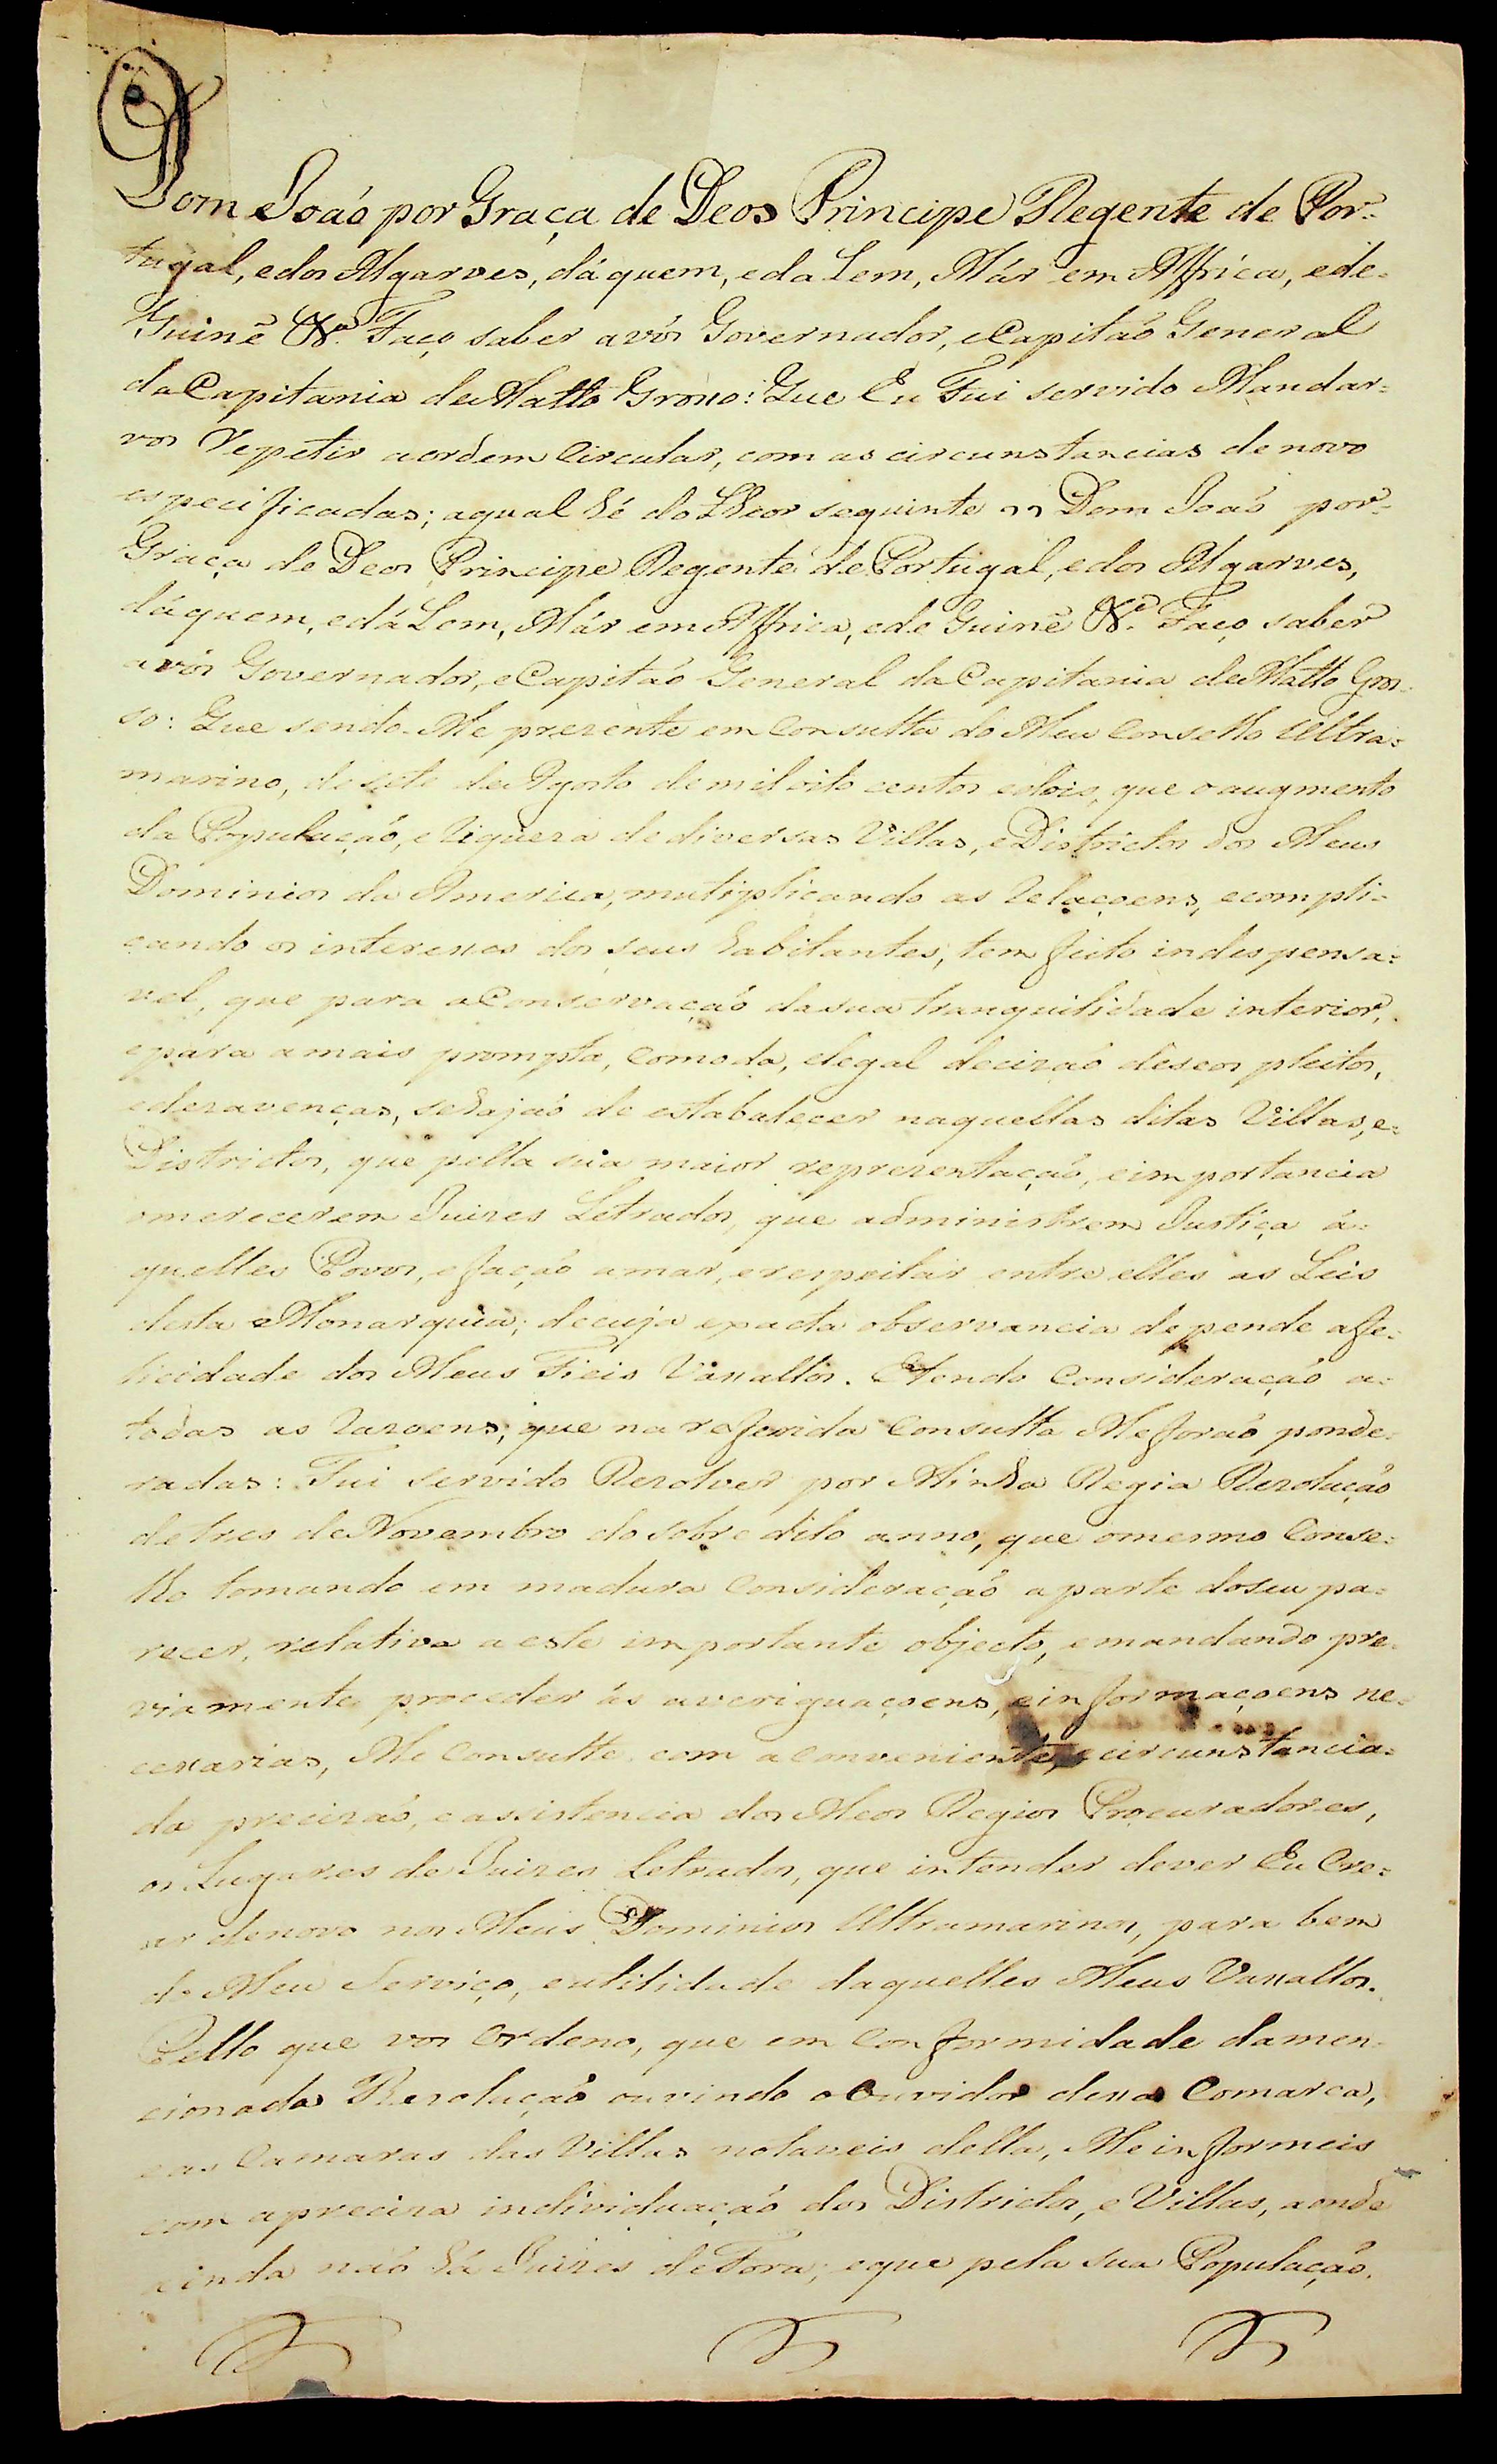 Dom Joaõ por Graça de Deos Principe Regente de Por=
tugal, e dos Algarves, dáquem, e da Lem, Már em Affrica, e de=
Guiné &.ª Faço saber a vós Governador, e Capitaõ General
da Capitania de Matto Grosso: Que Eu Fui servido Mandar=
vos Repetir a ordem Circular, com as circunstancias de novo
especificadas; a qual hé do Theor seguinte " Dom Joaõ por=
Graça de Deos Principe Regente de Portugal, e dos Algarves,
dáquem, e dá Lem, Már em Affrica, e de Guiné &.ª Faço saber
a vós Governador, e Capitaõ General da Capitania de Matto Gros=
so: Que sendo-Me prezente em Consulta do Meu Conselho Ultra=
marino, de sete de Agosto de mil oito centos e dois, que o augmento
da Populaçaõ, e riqueza de diversas Villas, e Districtos dos Meus
Dominios da America, mutiplicando as relaçoens, e compli=
cando os interesses dos seus habitantes, tem feito indespensa=
vel, que para a Conservaçaõ da sua tranquilidade interior,
e para a mais prompta, comoda, e legal decizaõ deseos pleitos,
e dezavenças, se hajaõ de estabalecer naquellas ditas Villas, e=
Districtos, que pella sua maior reprezentaçaõ, e importancia
o merecerem Juizes Letrados, que administrem Justiça á=
quelles Povos, e façaõ amar, e respeitar entre elles as Leis
desta Monarquia; de cuja exacta observancia depende a fe=
licidade dos Meus Fieis Vassallos. E tendo Consideraçaõ a=
todas as razoens, que na referida Consulta Me foraõ ponde=
radas: Fui servido Rezolver por Minha Regia Rezoluçaõ
de tres de Novembro do sobre dito anno, que o mesmo Conse=
lho tomando em madura Consideraçaõ a parte do seu pa=
recer, relativa a este importante objecto, e mandando pre=
viamente proceder ás averiguaçoens, e informaçoens ne=
cessarias, Me Consulte com a conveniente, e circunstancia=
da precizaõ, e assistencia dos Meos Regios Procuradores,
os Lugares de Juizes Letrados, que intender dever Eu Cre=
ar de novo nos Meus Dominios Ultramarinos, para bem
do Meu Serviço, e utilidade daquelles Meus Vassallos.
Pello que vos Ordeno, que em Conformidade da men=
cionada Rezoluçaõ ouvindo o Ouvidor dessa Comarca,
e as Camaras das Villas notaveis della, Me informeis
com a preciza individuaçaõ dos Districtos, e Villas, aonde
ainda naõ há Juizes de Fora; e que pela sua Populaçaõ,